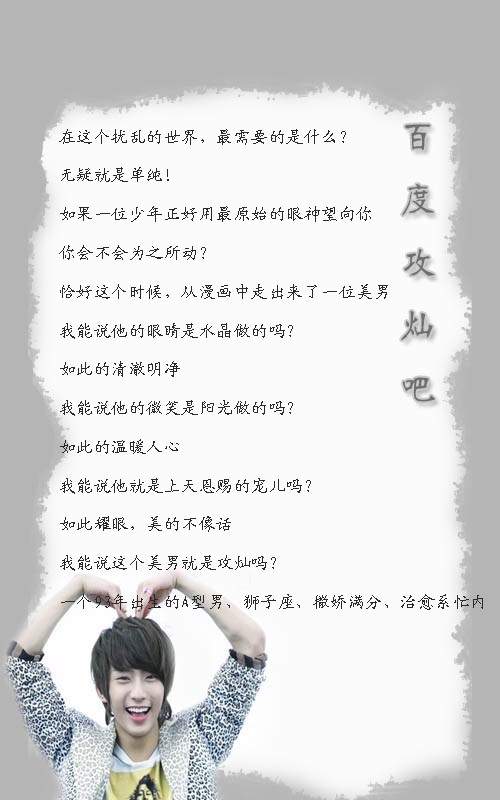 在这个扰乱的世界，最需要的是什么？
无疑就是单纯！
如果一位少年正好用最原始的眼神望向你
你会不会为之所动？
恰好这个时候，从漫画中走出来了一位美男
我能说他的眼睛是水晶做的吗？
如此的清澈明净
我能说他的微笑是阳光做的吗？
如此的温暖人心
我能说他就是上天恩赐的宠儿吗？
如此耀眼，美的不像话
我能说这个美男就是攻灿吗？
一个93年出生的A型男、狮子座、撒娇满分、治愈系忙内
百度攻灿吧